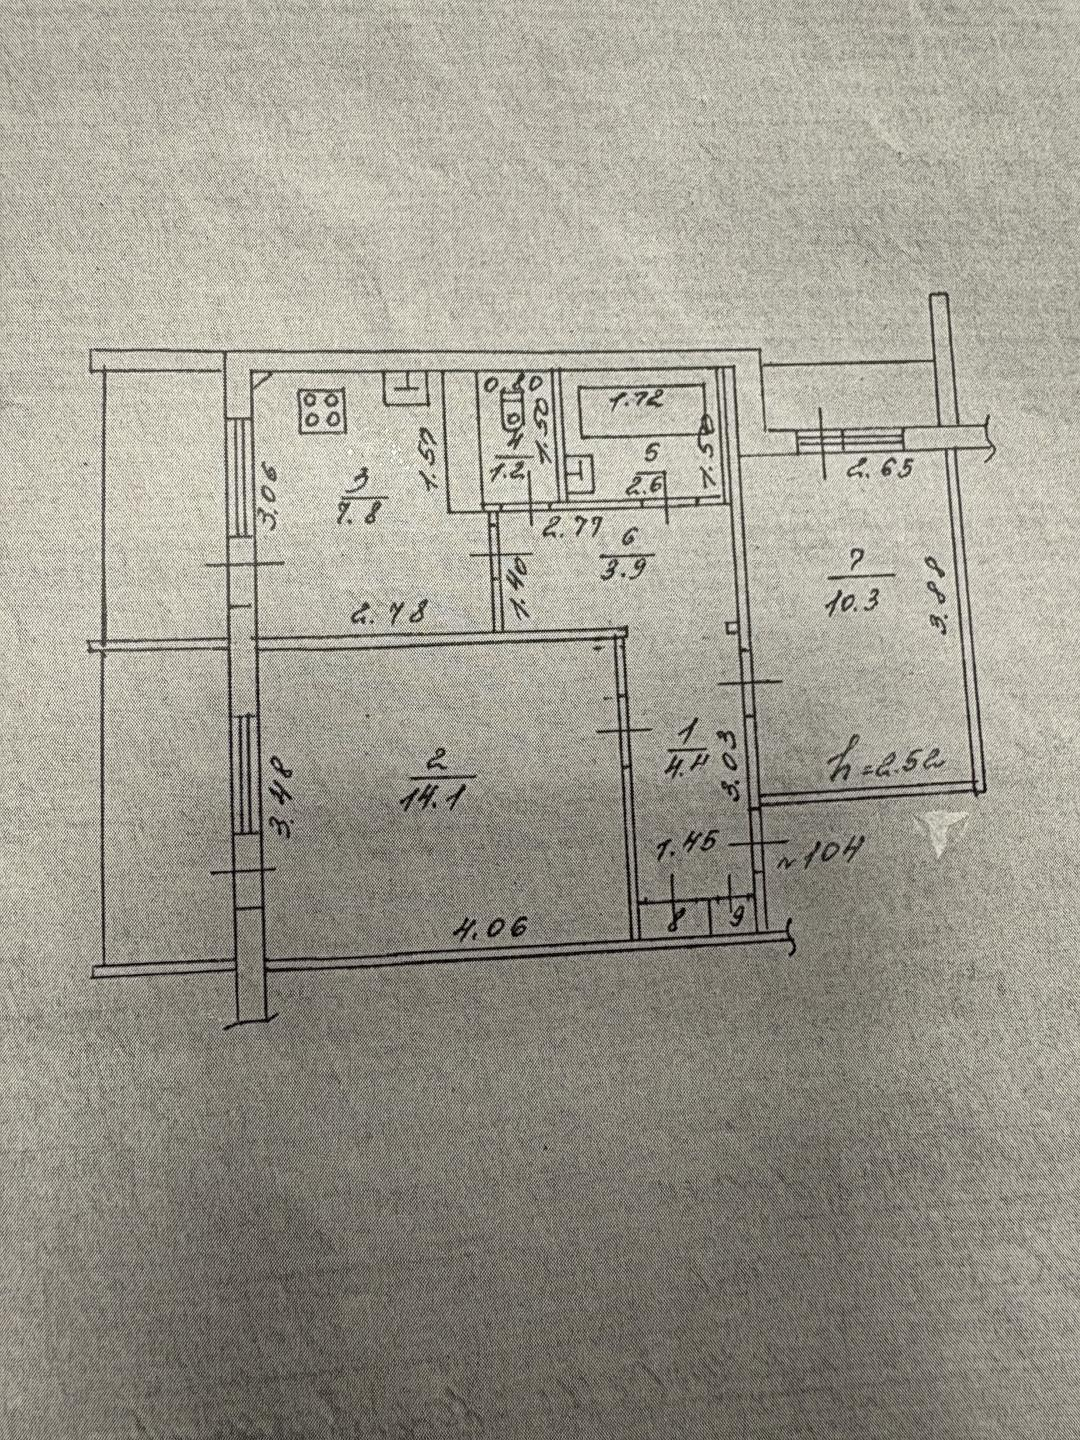 0.80
1.72
1.50
1.50
1.57
4
1.2
5
2.6
2.65
3.06
3
7.8
2.77
6
3.9
7
10.3
3.88
1.40
2.78
1
4.4
3.03
h=2.52
2
14.1
3.48
1.45
~104
4.06
8
9